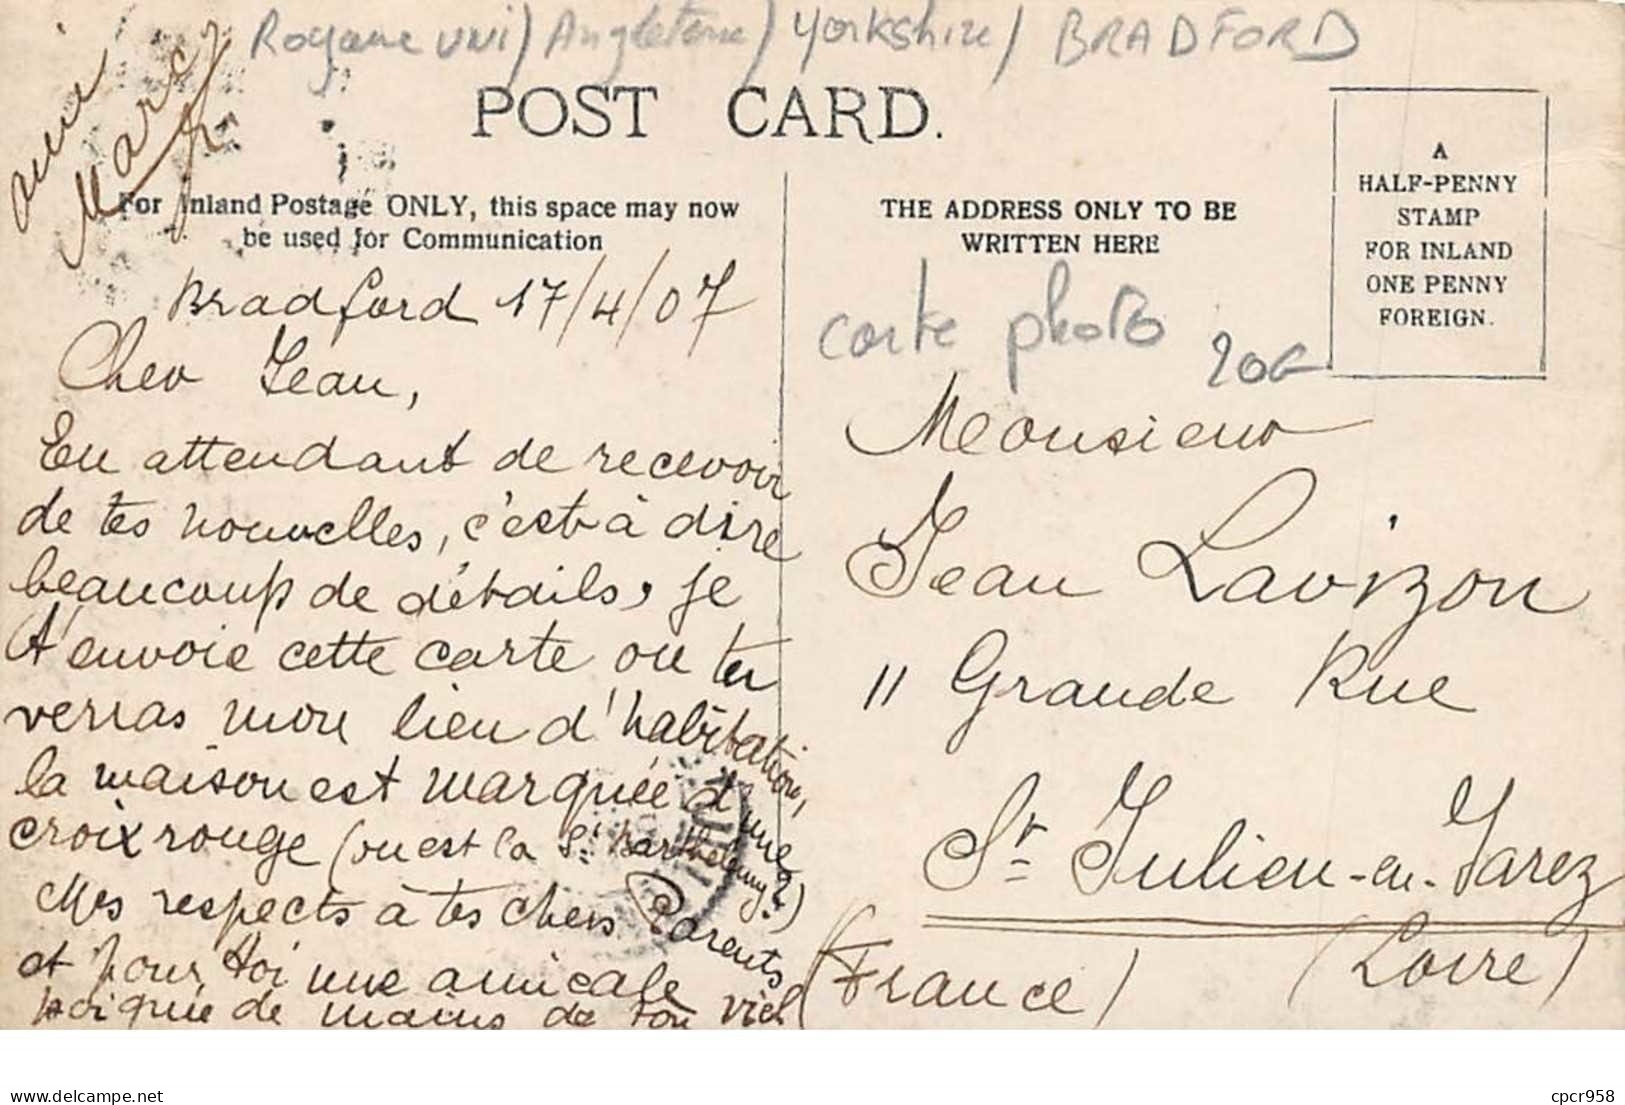 Royaume uni / Angleterre / Yorkshire / BRADFORD
POST CARD.
For Inland Postage ONLY, this space may now
be used for Communication
THE ADDRESS ONLY TO BE
WRITTEN HERE
A
HALF-PENNY
STAMP
FOR INLAND
ONE PENNY
FOREIGN.
carte photo
20€
Bradford 17/4/07
Cher Jean,
En attendant de recevoir
de tes nouvelles, c'est à dire
beaucoup de détails, je
t'envoie cette carte ou tu
verras mon lieu d'habitation,
la maison est marquée d'une
croix rouge (ou est la St Barthelemy?)
Mes respects à tes chers Parents
et pour toi une amicale
poignée de mains de ton vieil
ami
Marc
Monsieur
Jean Lavizon
11 Grande Rue
St Julien-en-Jarez
(Loire)
(France)
delcampe.net
cpcr958